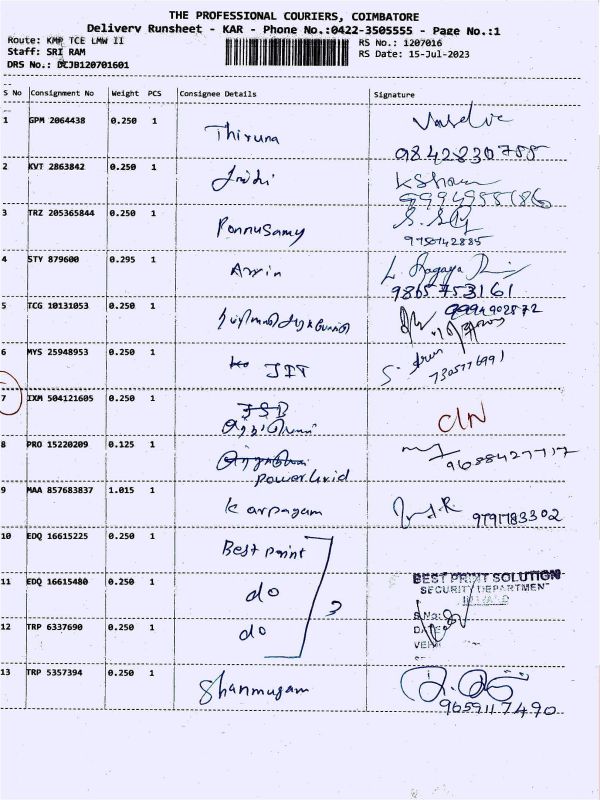 THE PROFESSIONAL COURIERS, COIMBATORE
Delivery Runsheet - KAR - Phone No.:0422-3505555 - Page No.:1
Route: KMP TCE LMW II
RS No.: 1207016
Staff: SRI RAM
RS Date: 15-Jul-2023
DRS No.: DCJB120701601
S No Consignment No Weight PCS Consignee Details Signature
1 GPM 2064438 0.250 1 Thiruna
9842830788
2 KVT 2863842 0.250 1
3 TRZ 205365844 0.250 1 Ponnusamy
9750142885
4 STY 879600 0.295 1
9865753161
5 TCG 10131053 0.250 1
9994902872
6 MYS 25948953 0.250 1 JIT
7305776991
7 IXM 504121605 0.250 1
C/N
8 PRO 15220209 0.125 1
Powergrid
9688427717
9 MAA 857683837 1.015 1 Karpagam
9791783302
10 EDQ 16615225 0.250 1 Best print
11 EDQ 16615480 0.250 1 do
BEST PRINT SOLUTION
SECURITY DEPARTMENT
INWARD
S.No:
12 TRP 6337690 0.250 1 do
DATE
13 TRP 5357394 0.250 1 Shanmugam
9659117490